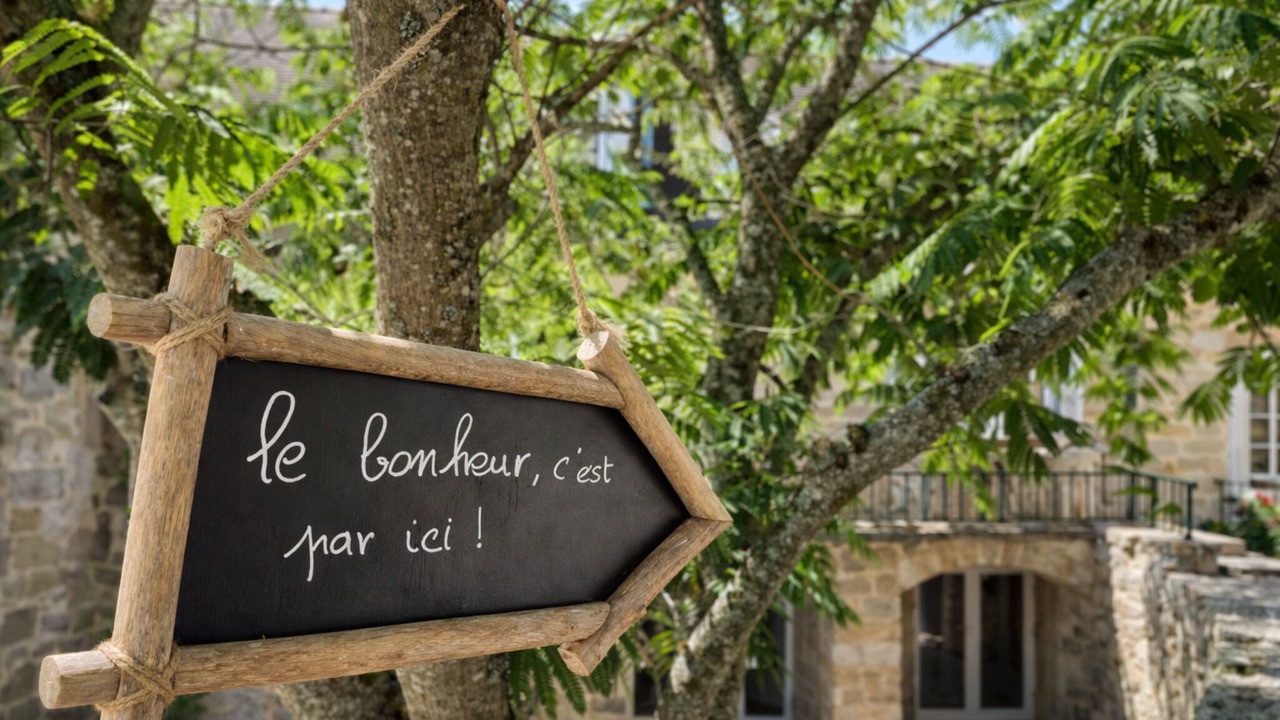 le bonheur, c'est
par ici !